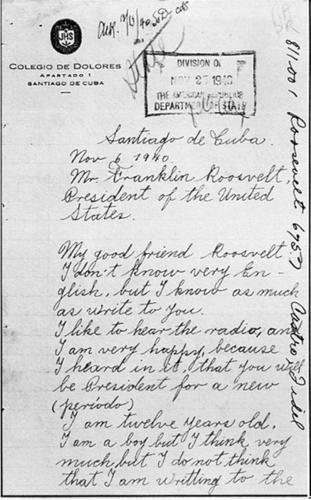 JHS
COLEGIO DE DOLORES
APARTADO 1
SANTIAGO DE CUBA
DIVISION OF
NOV 27 1940
THE AMERICAN REPUBLICS
DEPARTMENT OF STATE
Santiago de Cuba.
Nov 6 1940.
Mr. Franklin Roosvelt,
President of the United
States.
My good friend Roosvelt
I don't know very En-
glish, but I know as much
as write to you.
I like to hear the radio, and
I am very happy, because
I heard in it, that you will
be President for a new
(periodo)
I am twelve years old.
I am a boy but I think very
much but I do not think
that I am writting to the
811.001 Roosevelt
Castro, Fidel